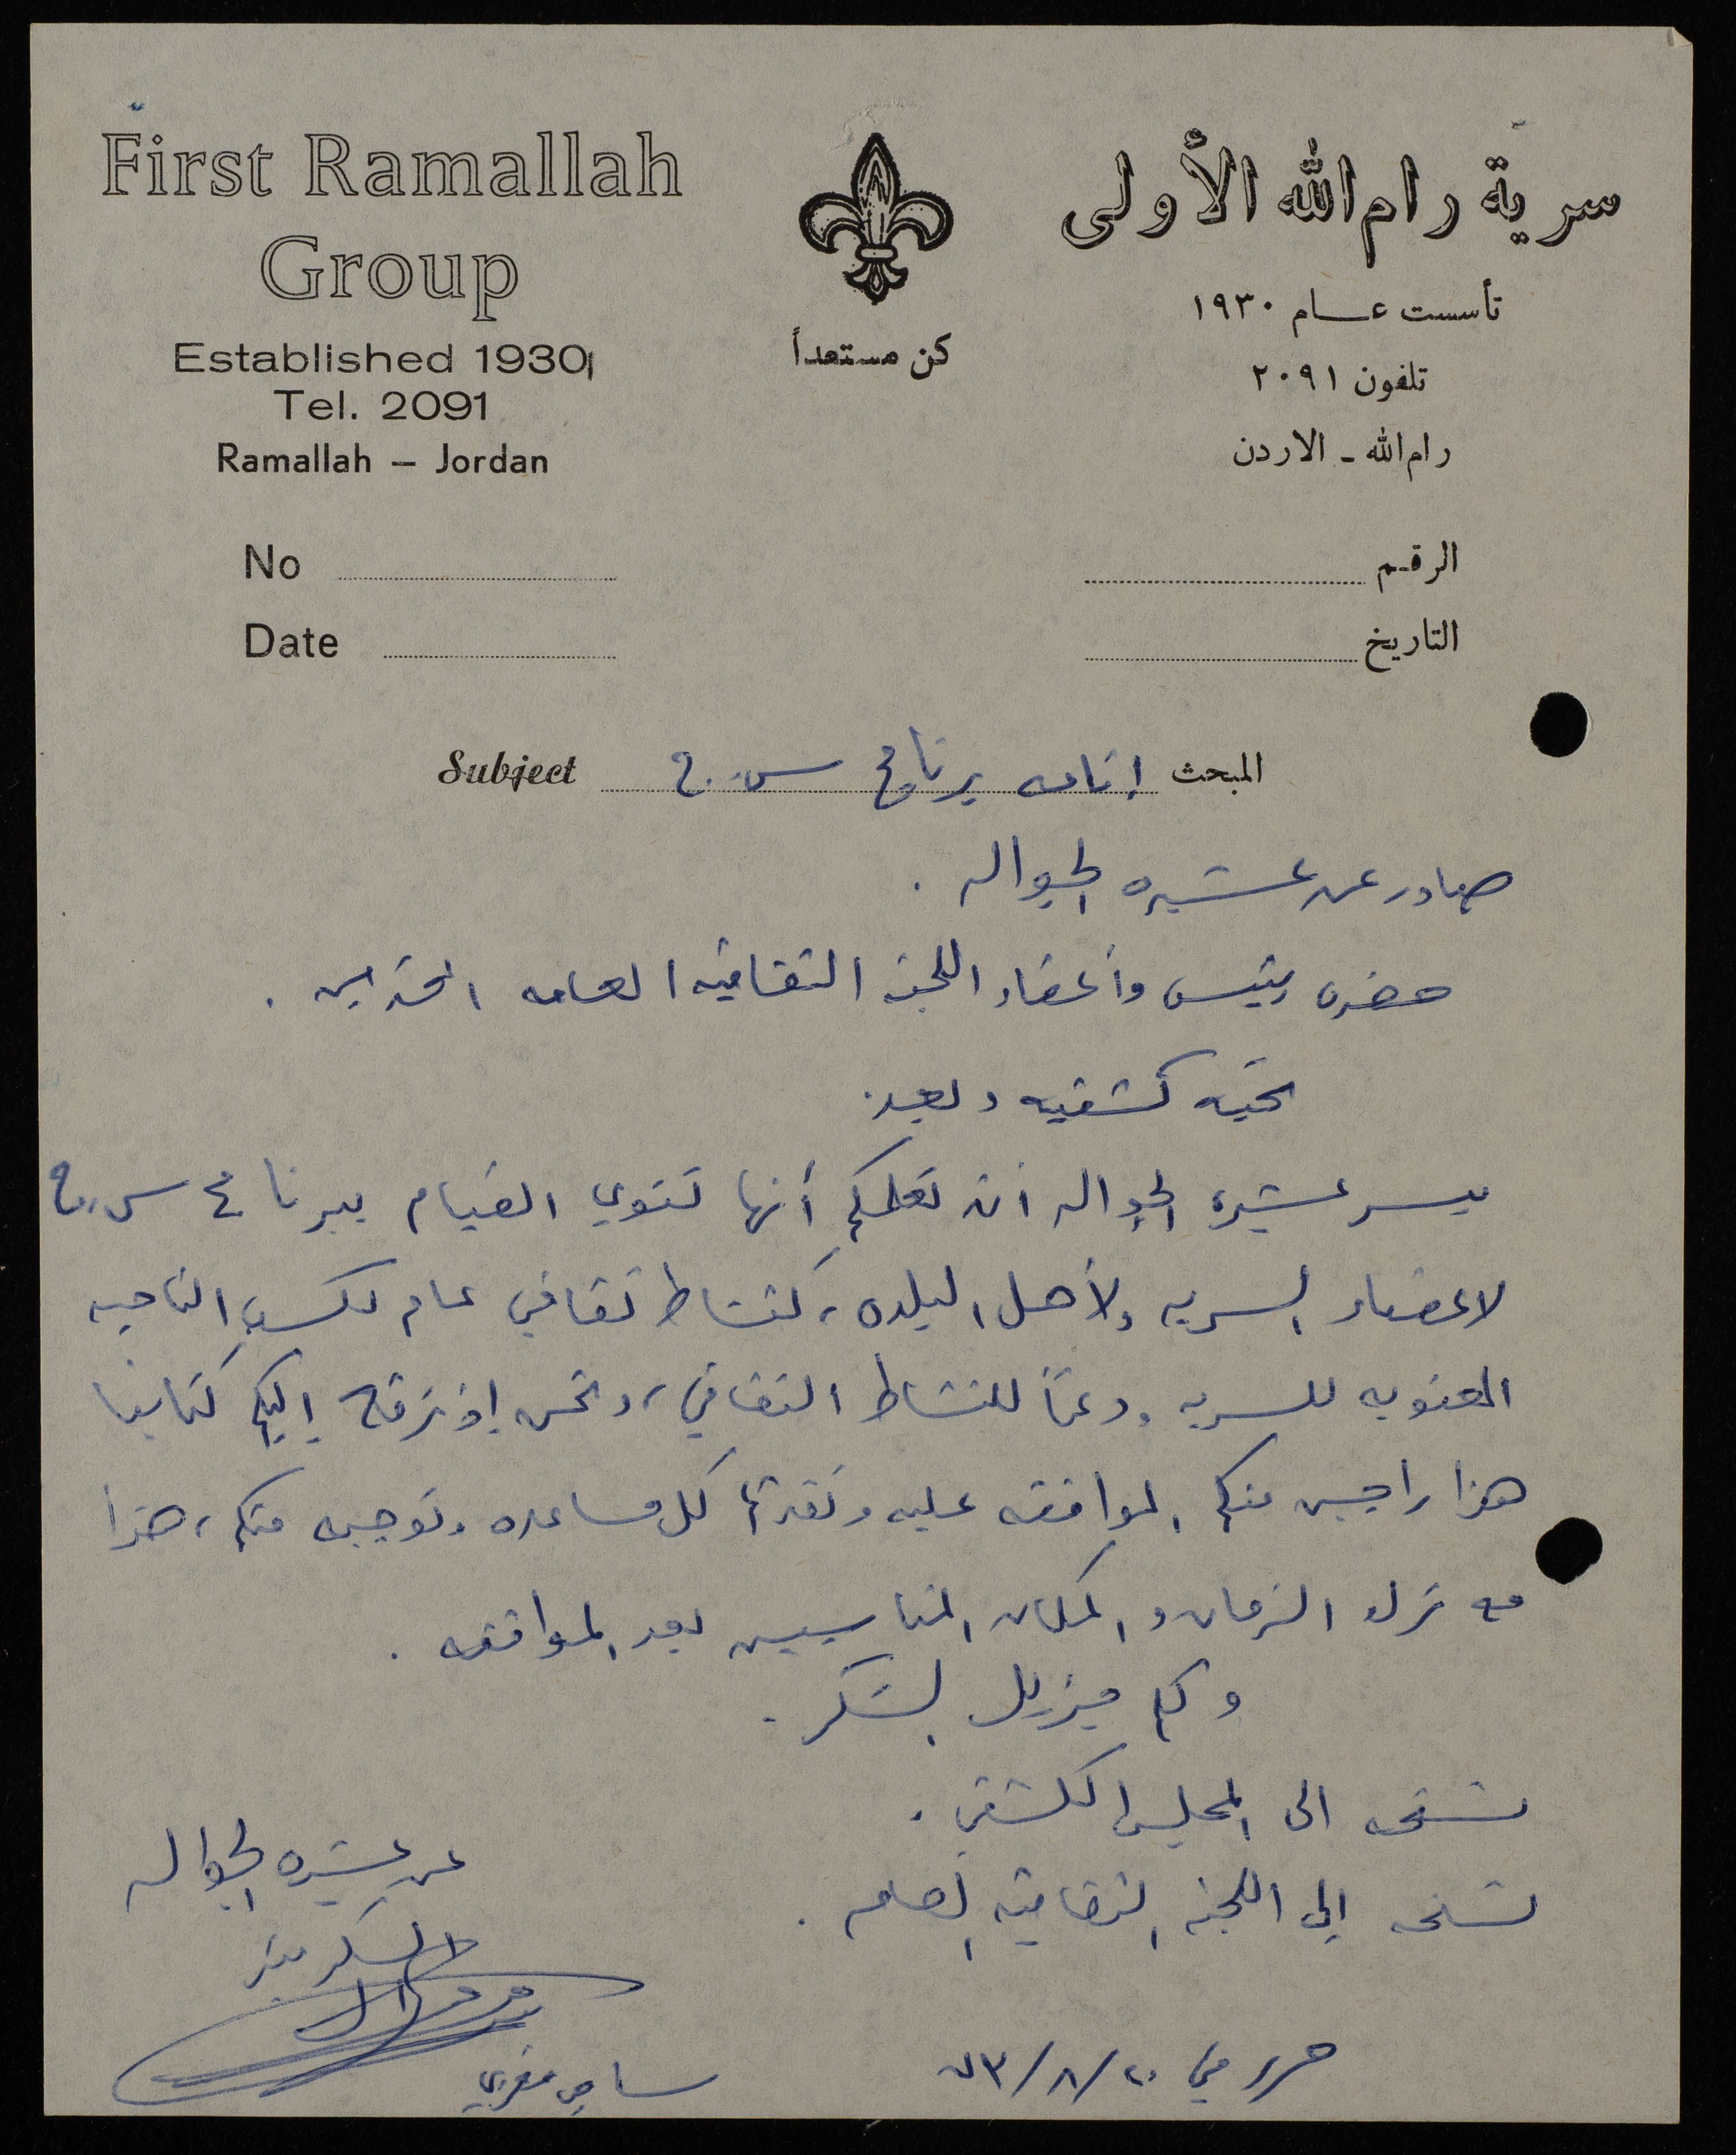 First Ramallah
Group
Established 1930
Tel. 2091
Ramallah – Jordan
كن مستعداً
سرية رام الله الأولى
تأسست عام ١٩٣٠
تلفون ٢٠٩١
رام الله - الاردن
No
الرقم
Date
التاريخ
Subject
المبحث اقامه برنامج س.ج
صادر عن عشيره الجواله .
حضره رئيس وأعضاء اللجنه الثقافيه العامه المحترمين .
تحيه كشفيه وبعد.
يسر عشيره الجواله ان تعلمكم أنها تنوي القيام ببرنامج س.ج
لاعضاء السريه ولأهل البلده، كنشاط ثقافي عام لكسب الناحيه
المعنويه للسريه ودعماً للنشاط الثقافي، ونحن إذ نرفع إليكم كتابنا
هذا راجين منكم الموافقه عليه وتقديم كل مساعده وتوجيه منكم، هذا
مع ترك الزمان والمكان المناسبين بعد الموافقه .
ولكم جزيل الشكر .
نسخه الى المجلس الكشفي .
نسخه إلى اللجنه الثقافيه العامه .
عن عشيره الجواله
السكرتير
سامي مغربي
حرر في ٢٠/٨/٧٣